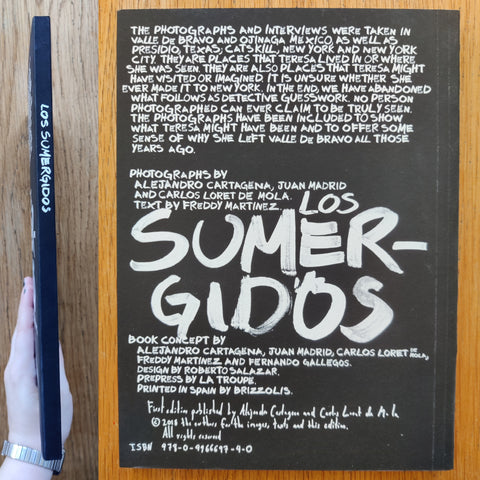 LOS SUMERGIDOS
THE PHOTOGRAPHS AND INTERVIEWS WERE TAKEN IN
VALLE DE BRAVO AND OJINAGA MEXICO, AS WELL AS
PRESIDIO, TEXAS; CATSKILL, NEW YORK AND NEW YORK
CITY. THEY ARE PLACES THAT TERESA LIVED IN OR WHERE
SHE WAS SEEN. THEY ARE ALSO PLACES THAT TERESA MIGHT
HAVE VISITED OR IMAGINED. IT IS UNSURE WHETHER SHE
EVER MADE IT TO NEW YORK. IN THE END, WE HAVE ABANDONED
WHAT FOLLOWS AS DETECTIVE GUESSWORK. NO PERSON
PHOTOGRAPHED CAN EVER CLAIM TO BE TRULY SEEN.
THE PHOTOGRAPHS HAVE BEEN INCLUDED TO SHOW
WHAT TERESA MIGHT HAVE BEEN AND TO OFFER SOME
SENSE OF WHY SHE LEFT VALLE DE BRAVO ALL THOSE
YEARS AGO.
PHOTOGRAPHS BY
ALEJANDRO CARTAGENA, JUAN MADRID
AND CARLOS LORET DE MOLA.
TEXT BY FREDDY MARTINEZ
LOS
SUMER-
GIDOS
BOOK CONCEPT BY
ALEJANDRO CARTAGENA, JUAN MADRID, CARLOS LORET DE MOLA,
FREDDY MARTINEZ AND FERNANDO GALLEGOS.
DESIGN BY ROBERTO SALAZAR.
PREPRESS BY LA TROUPE.
PRINTED IN SPAIN BY BRIZZOLIS.
First edition published by Alejandro Cartagena and Carlos Loret de
© 2018 the authors for the images, texts and this edition.
All rights reserved
ISBN 978-0-9966697-9-0